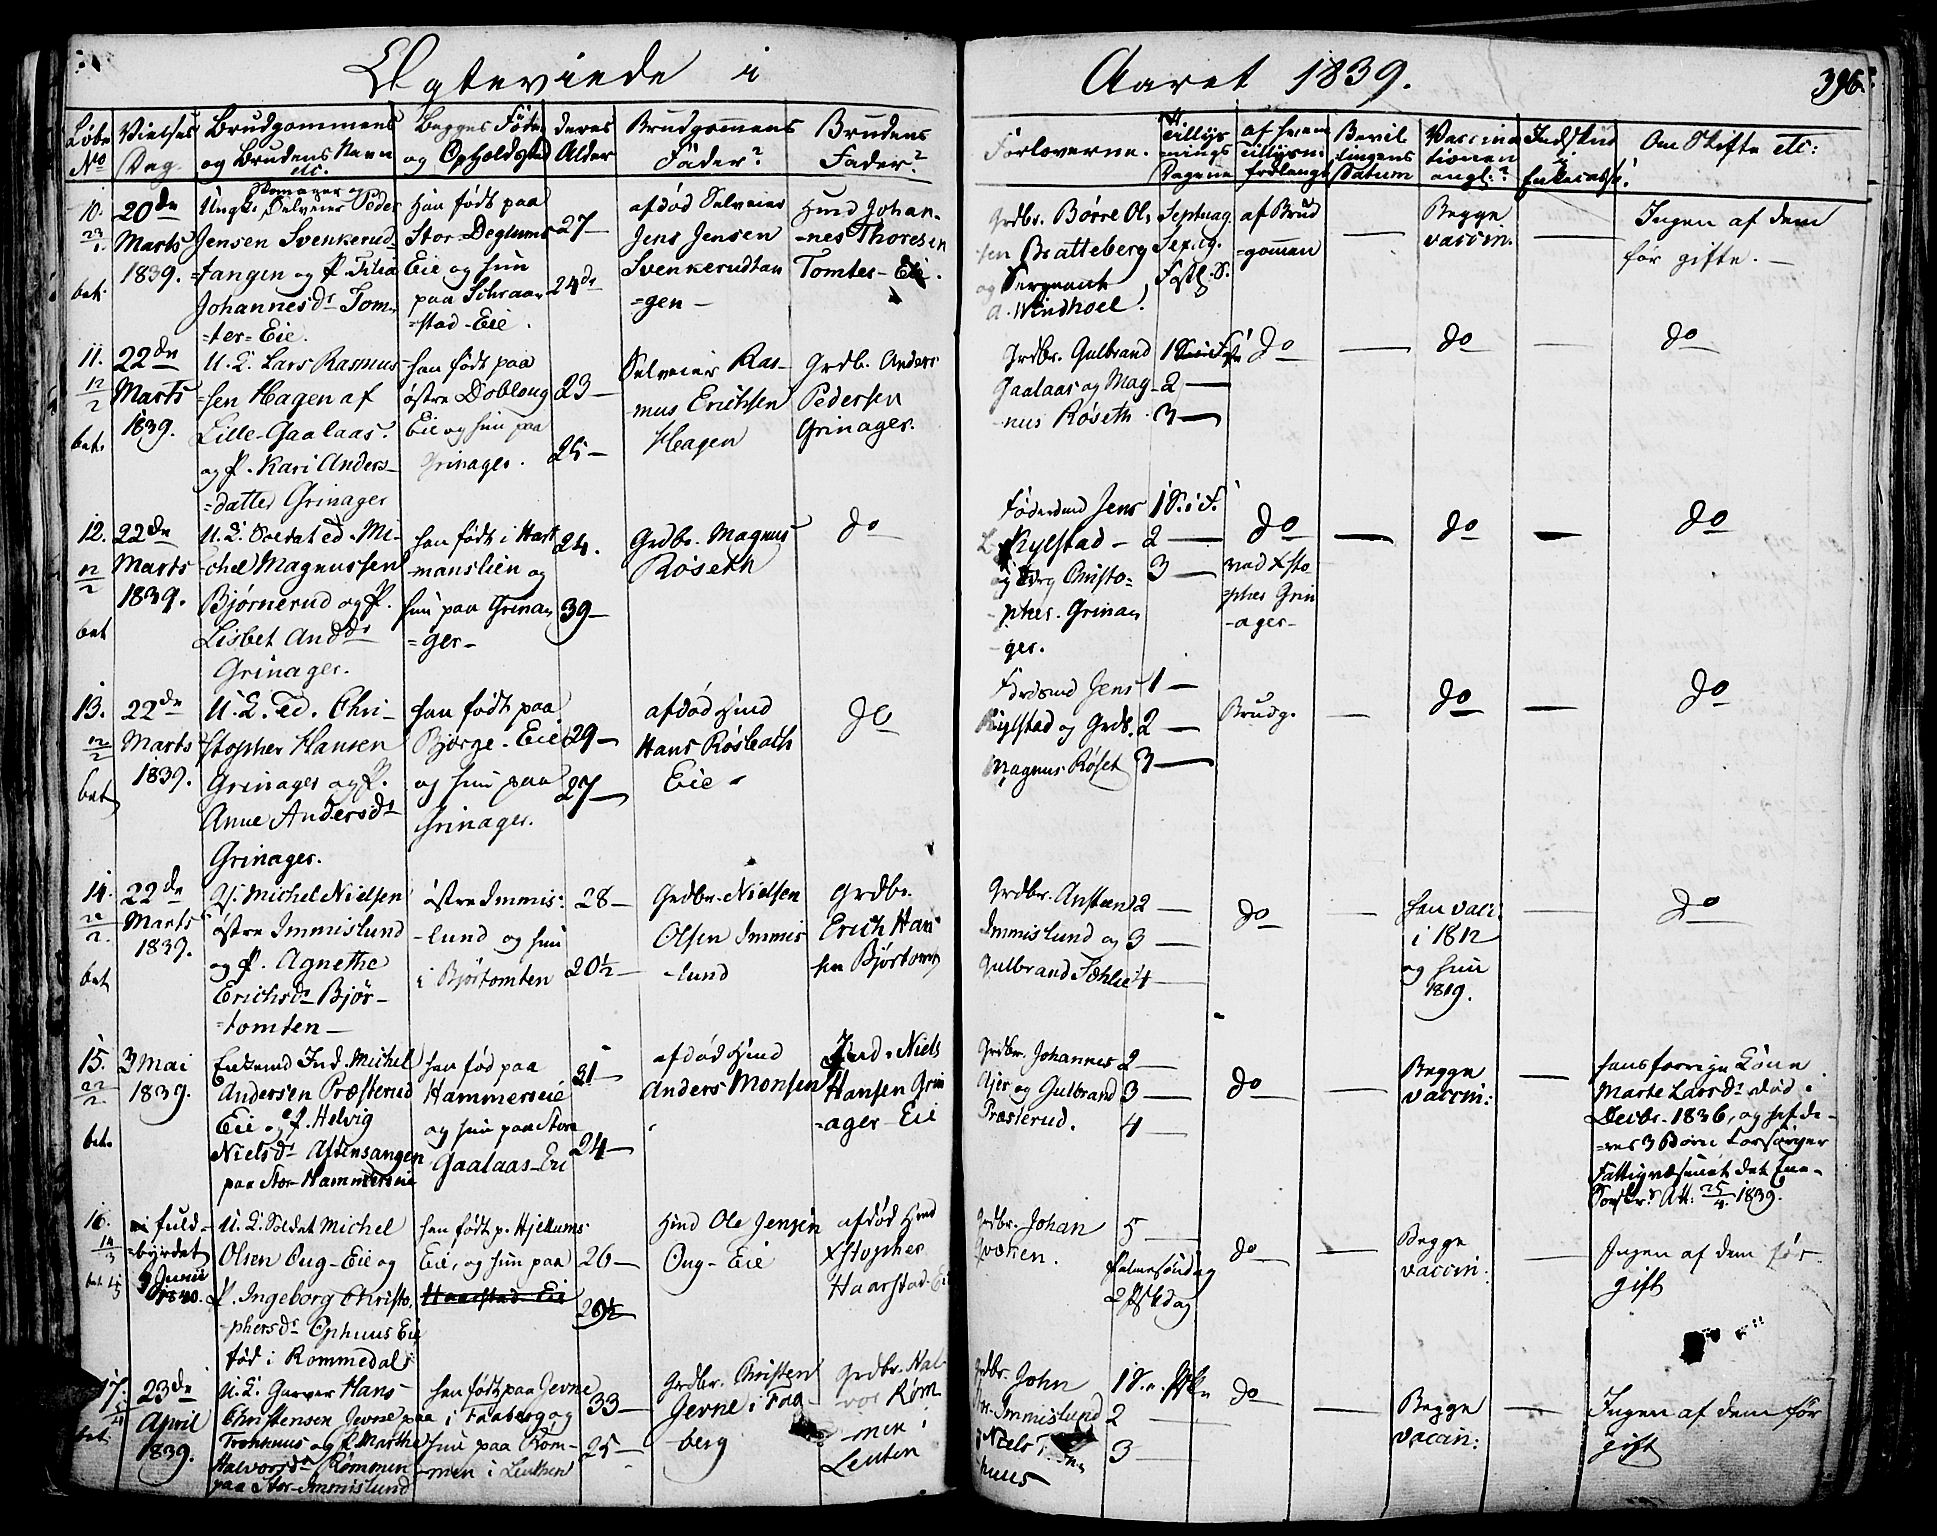 Ægteviede i Aaret 1839.
396.
Løbe No
Vielses Dag
Brudgommens og Brudens Navn etc.
Begges Føde og Opholdsted
deres Alder
Brudgommens Fader?
Brudens Fader?
Forloverne.
Tillys
nings
Dagene
af hvem
Tillysn.
forlangt
Bevil
lingens
Datum
Vaccina
tionen
angl.?
Indskud
i
Enkecasse.
Om Skifte etc:
10.
23
1
bet.
20de
Marts
1839.
Ungk. Selveier Peder
Jensen Svenkerud
tangen og P. Silia
Johannesdr Tom
=ter-Eie.
Han født paa
Stor-Deglums
Eie og hun
paa
=stad-Eie.
27—
24de
afdød Selveier
Jens Jensen
Svenkerudtan
=gen—
Huusmd Johan-
=nes Thoresen
Tomter-Eie.
Grdbr. Børre Ol,
sen Bratteberg
og Sergeant
a. Windhoel.
Septuag
Sexag.
Fastl. S.
af Brud
=gomen
—
Begge
vaccin.
—
Ingen af dem
før gifte.—
11.
12
2
bet.
22de
Marts
1839.
U. K. Lars Rasmus
=sen Hagen af
Lille-Gaalaas.
og P. Kari Anders-
=datter Grinager
Han født paa
østre Doblong
Eie og hun paa
Grinager.
23—
25—
Selveier Ras-
mus Erichsen
Hagen
Grdb. Anders
Pedersen
Grinager.
Grdbr. Gulbrand
Gaalaas og Mag-
nus Røseth
1 S. i Faste
2—
3—
do
—
do
—
do
12.
12
2
bet
22de
Marts
1839.
U. K. Soldat ed. Mi-
=chel Magnussen
Bjørnerud og P.
Lisbet Anddr
Grinager.
Han født i Hart
=manslien og
hun paa Grina
=ger-
24.
39—
Grdbr. Magnus
Røseth
do
Føderaad Jens
Rylstad-
og Christo=
=pher. Grina
ger.
1 S. i F.
2—
3—
do
ved Xsto
=pher Grin
=ager-
—
do
—
do
13.
12
2
bet
22de
Marts
1839.
U. K. Ed. Chri-
=stopher Hansen
Grinager og P.
Anne Andersdr
Grinager.
Han født paa
Bjørge-Eie
og hun paa
Grinager.
29—
27—
afdød Hmd
Hans Røsbath
Eie-
do
Jens
Rylstad og Grdb.
Magnus Røset
1—
2—
3—
Brudg.
—
do
—
do
14.
2
bet
22de
Marts
1839.
Y. Michel Nielsen
østre Immislund
og P. Agnethe
Erichsdr Bjør-
=tomten—
østre Immis:
-lund og hun
i Bjørtomten
28—
20½—
Grdbr. Nielsen
Olsen Immis
-lund
Grdbr.
Erich Han
sen Bjørtomt
Grdbr. Ansteen
Immislund og
Gulbrand Fæhlie
2—
3—
4—
do
—
Han vacc
i 1812
og hun
1819.
—
do
15.
22
2
bet.
3 Mai
1839.
Enkemd Ind. Michel
Andersen Præsterud
Eie og P. Helvig
Nielsdr Aftensangen
paa Stor-Hammerseie
Han fød paa
Hammerseie
og hun paa Store
Gaalaas-Eie
31—
24—
afdød Hmd
Anders Monsen
Ind. Niels
Hansen Grin
=ager-Eie
Grdbr. Johannes
Ajer og Gulbrand
Præsterud.
2—
3—
4—
do
—
Begge
vaccin:
—
Hans forrige Kone
Marte Larsdr død i
Decbr. 1836, og for de-
=res 3 Børn forsørger
Fattigvæsenet det Ene-
Att: 25/4 1839.
16.
14
3
bet
fuld-
=byrdet
3 Junii
1840.
U. K. Soldat Michel
Olsen Oug-Eie og
P. Ingeborg Christo,
=phersdr Ophuus Eie
fød i Rommedal
Han født p. Hjellums
Eie, og hun paa
Haarstad-Eie
26—
29½
Hmd Ole Jensen
Oug-Eie
afdød Hmd
Xstopher
Haarstad-Eie
Grdbr. Johan
5—
Palmesøndag
2 Paaskedag
do
—
Begge
vaccin.
—
Ingen af dem før
gift
17.
bet
23de
April
1839.
U. K. Garver Hans
Christensen Jevne paa
Frohuus og P. Marthe
Halvorsdr Rømmen
paa Stor-Immislund
Han født paa Jevne
i Faaberg og
hun paa Røm-
=men i Leuthen
33—
25—
Grdbr. Christen
Jevne i Faa-
-berg
Grdbr. Hal-
vor Røm
-men i
Leuten
Grdbr. John
Immislund
Niels
huus
2—
3—
do
—
Begge
vaccin:
—
Ingen af dem før
gift